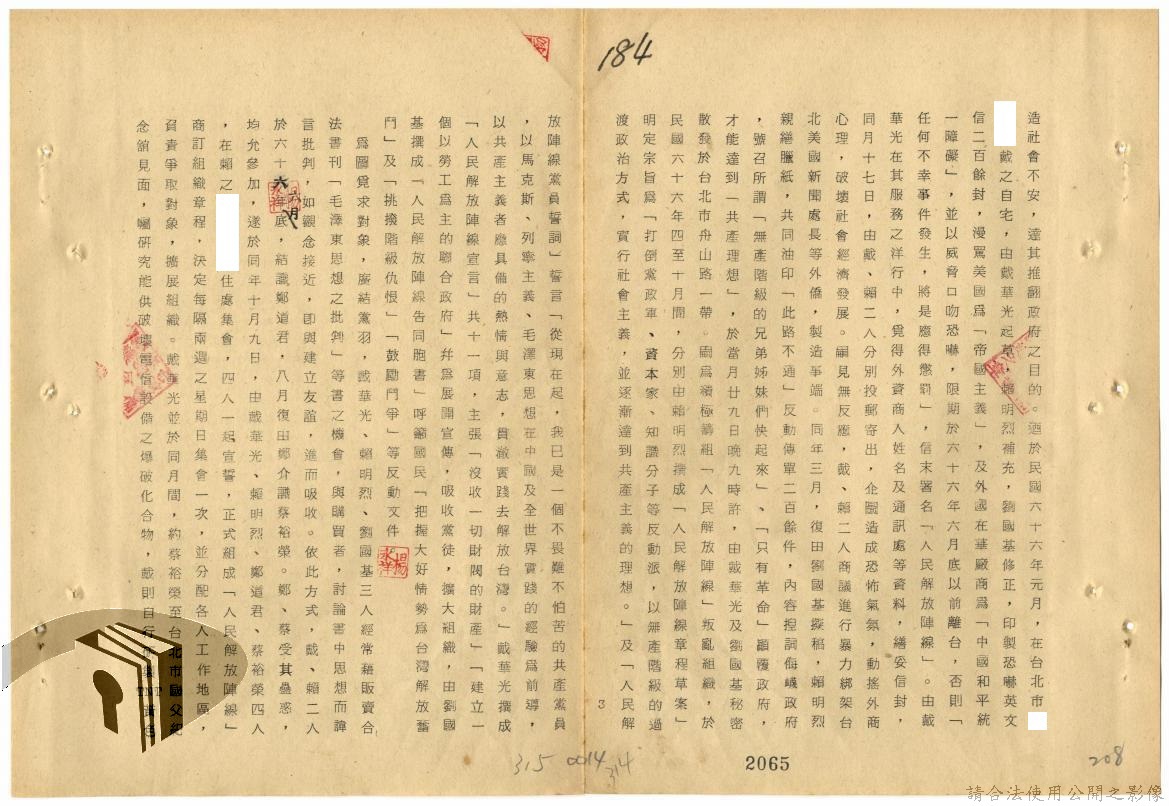 184
造社會不安，達其推翻政府之目的。迺於民國六十六年元月，在台北市
戴之自宅，由戴華光起草，賴明烈補充，劉國基修正，印製恐嚇英文
信二百餘封，漫罵美國爲「帝國主義」，及外國在華廠商爲「中國和平統
一障礙」，並以威脅口吻恐嚇，限期於六十六年六月底以前離台，否則「
任何不幸事件發生，將是應得懲罰」，信末署名「人民解放陣線」。由戴
華光在其服務之洋行中，覓得外資商人姓名及通訊處等資料，繕妥信封，
同月十七日，由戴、賴二人分別投郵寄出，企圖造成恐怖氣氛，動搖外商
心理，破壞社會經濟發展。嗣見無反應，戴、賴二人商議進行暴力綁架台
北美國新聞處長等外僑，製造爭端。同年三月，復由劉國基擬稿，賴明烈
親繕臘紙，共同油印「此路不通」反動傳單二百餘件，內容捏詞侮衊政府
，號召所謂「無產階級的兄弟姊妹們快起來」、「只有革命」顚覆政府，
才能達到「共產理想」，於當月廿九日晚九時許，由戴華光及劉國基秘密
散發於台北市舟山路一帶。嗣爲積極籌組「人民解放陣線」叛亂組織，於
民國六十六年四至十月間，分別由賴明烈撰成「人民解放陣線章程草案」
明定宗旨爲「打倒黨政軍、資本家、知識分子等反動派，以無產階級的過
渡政治方式，實行社會主義，並逐漸達到共產主義的理想。」及「人民解
3
放陣線黨員誓詞」誓言「從現在起，我已是一個不畏難不怕苦的共產黨員
，以馬克斯、列寧主義、毛澤東思想在中國及全世界實踐的經驗爲前導，
以共產主義者應具備的熱情與意志，貫澈實踐去解放台灣。」戴華光撰成
「人民解放陣線宣言」共十一項，主張「沒收一切財閥的財產」「建立一
個以勞工爲主的聯合政府」幷爲展開宣傳，吸收黨徒，擴大組織，由劉國
基撰成「人民解放陣線告同胞書」呼籲國民「把握大好情勢爲台灣解放奮
鬥」及「挑撥階級仇恨」「鼓勵鬥爭」等反動文件
爲圖覓求對象，廣結黨羽，戴華光、賴明烈、劉國基三人經常藉販賣合
法書刊「毛澤東思想之批判」等書之機會，與購買者，討論書中思想而諱
言批判，如觀念接近，卽與建立友誼，進而吸收。依此方式，戴、賴二人
於六十六年底，結識鄭道君，八月復由鄭介識蔡裕榮。鄭、蔡受其蠱惑，
均允參加，遂於同年十月九日，由戴華光、賴明烈、鄭道君、蔡裕榮四人
，在賴之住處集會，四人一起宣誓，正式組成「人民解放陣線」
商訂組織章程，決定每隔兩週之星期日集會一次，並分配各人工作地區，
召責爭取對象，擴展組織。戴華光並於同月間，約蔡裕榮至台北市國父紀
念館見面，囑硏究能供破壞電信設備之爆破化合物，戴則自行
2065
315
0014
314
208
請合法使用公開之影像